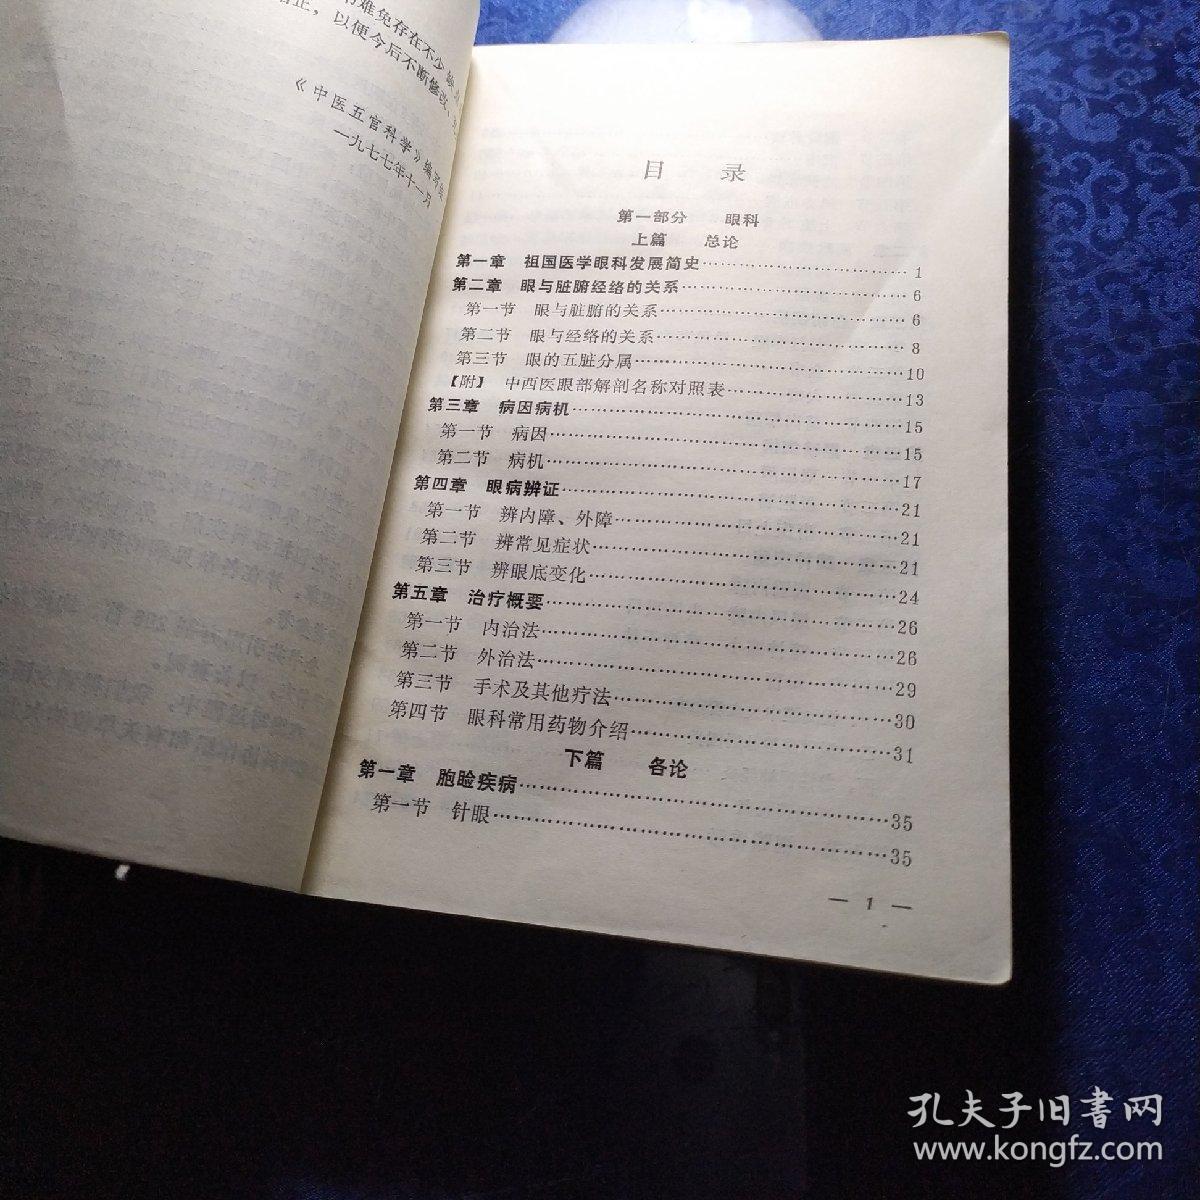 难免存在不少
正，以便今后不断修改、
《中医五官科学》编写
一九七七年十一月
目 录
第一部分 眼科
上篇 总论
第一章 祖国医学眼科发展简史……………………1
第二章 眼与脏腑经络的关系……………………6
第一节 眼与脏腑的关系……………………6
第二节 眼与经络的关系……………………8
第三节 眼的五脏分属……………………10
【附】 中西医眼部解剖名称对照表……………………13
第三章 病因病机……………………15
第一节 病因……………………15
第二节 病机……………………17
第四章 眼病辨证……………………21
第一节 辨内障、外障……………………21
第二节 辨常见症状……………………21
第三节 辨眼底变化……………………24
第五章 治疗概要……………………26
第一节 内治法……………………26
第二节 外治法……………………29
第三节 手术及其他疗法……………………30
第四节 眼科常用药物介绍……………………31
下篇 各论
第一章 胞睑疾病……………………35
第一节 针眼……………………35
— 1 —
孔夫子旧书网
www.kongfz.com